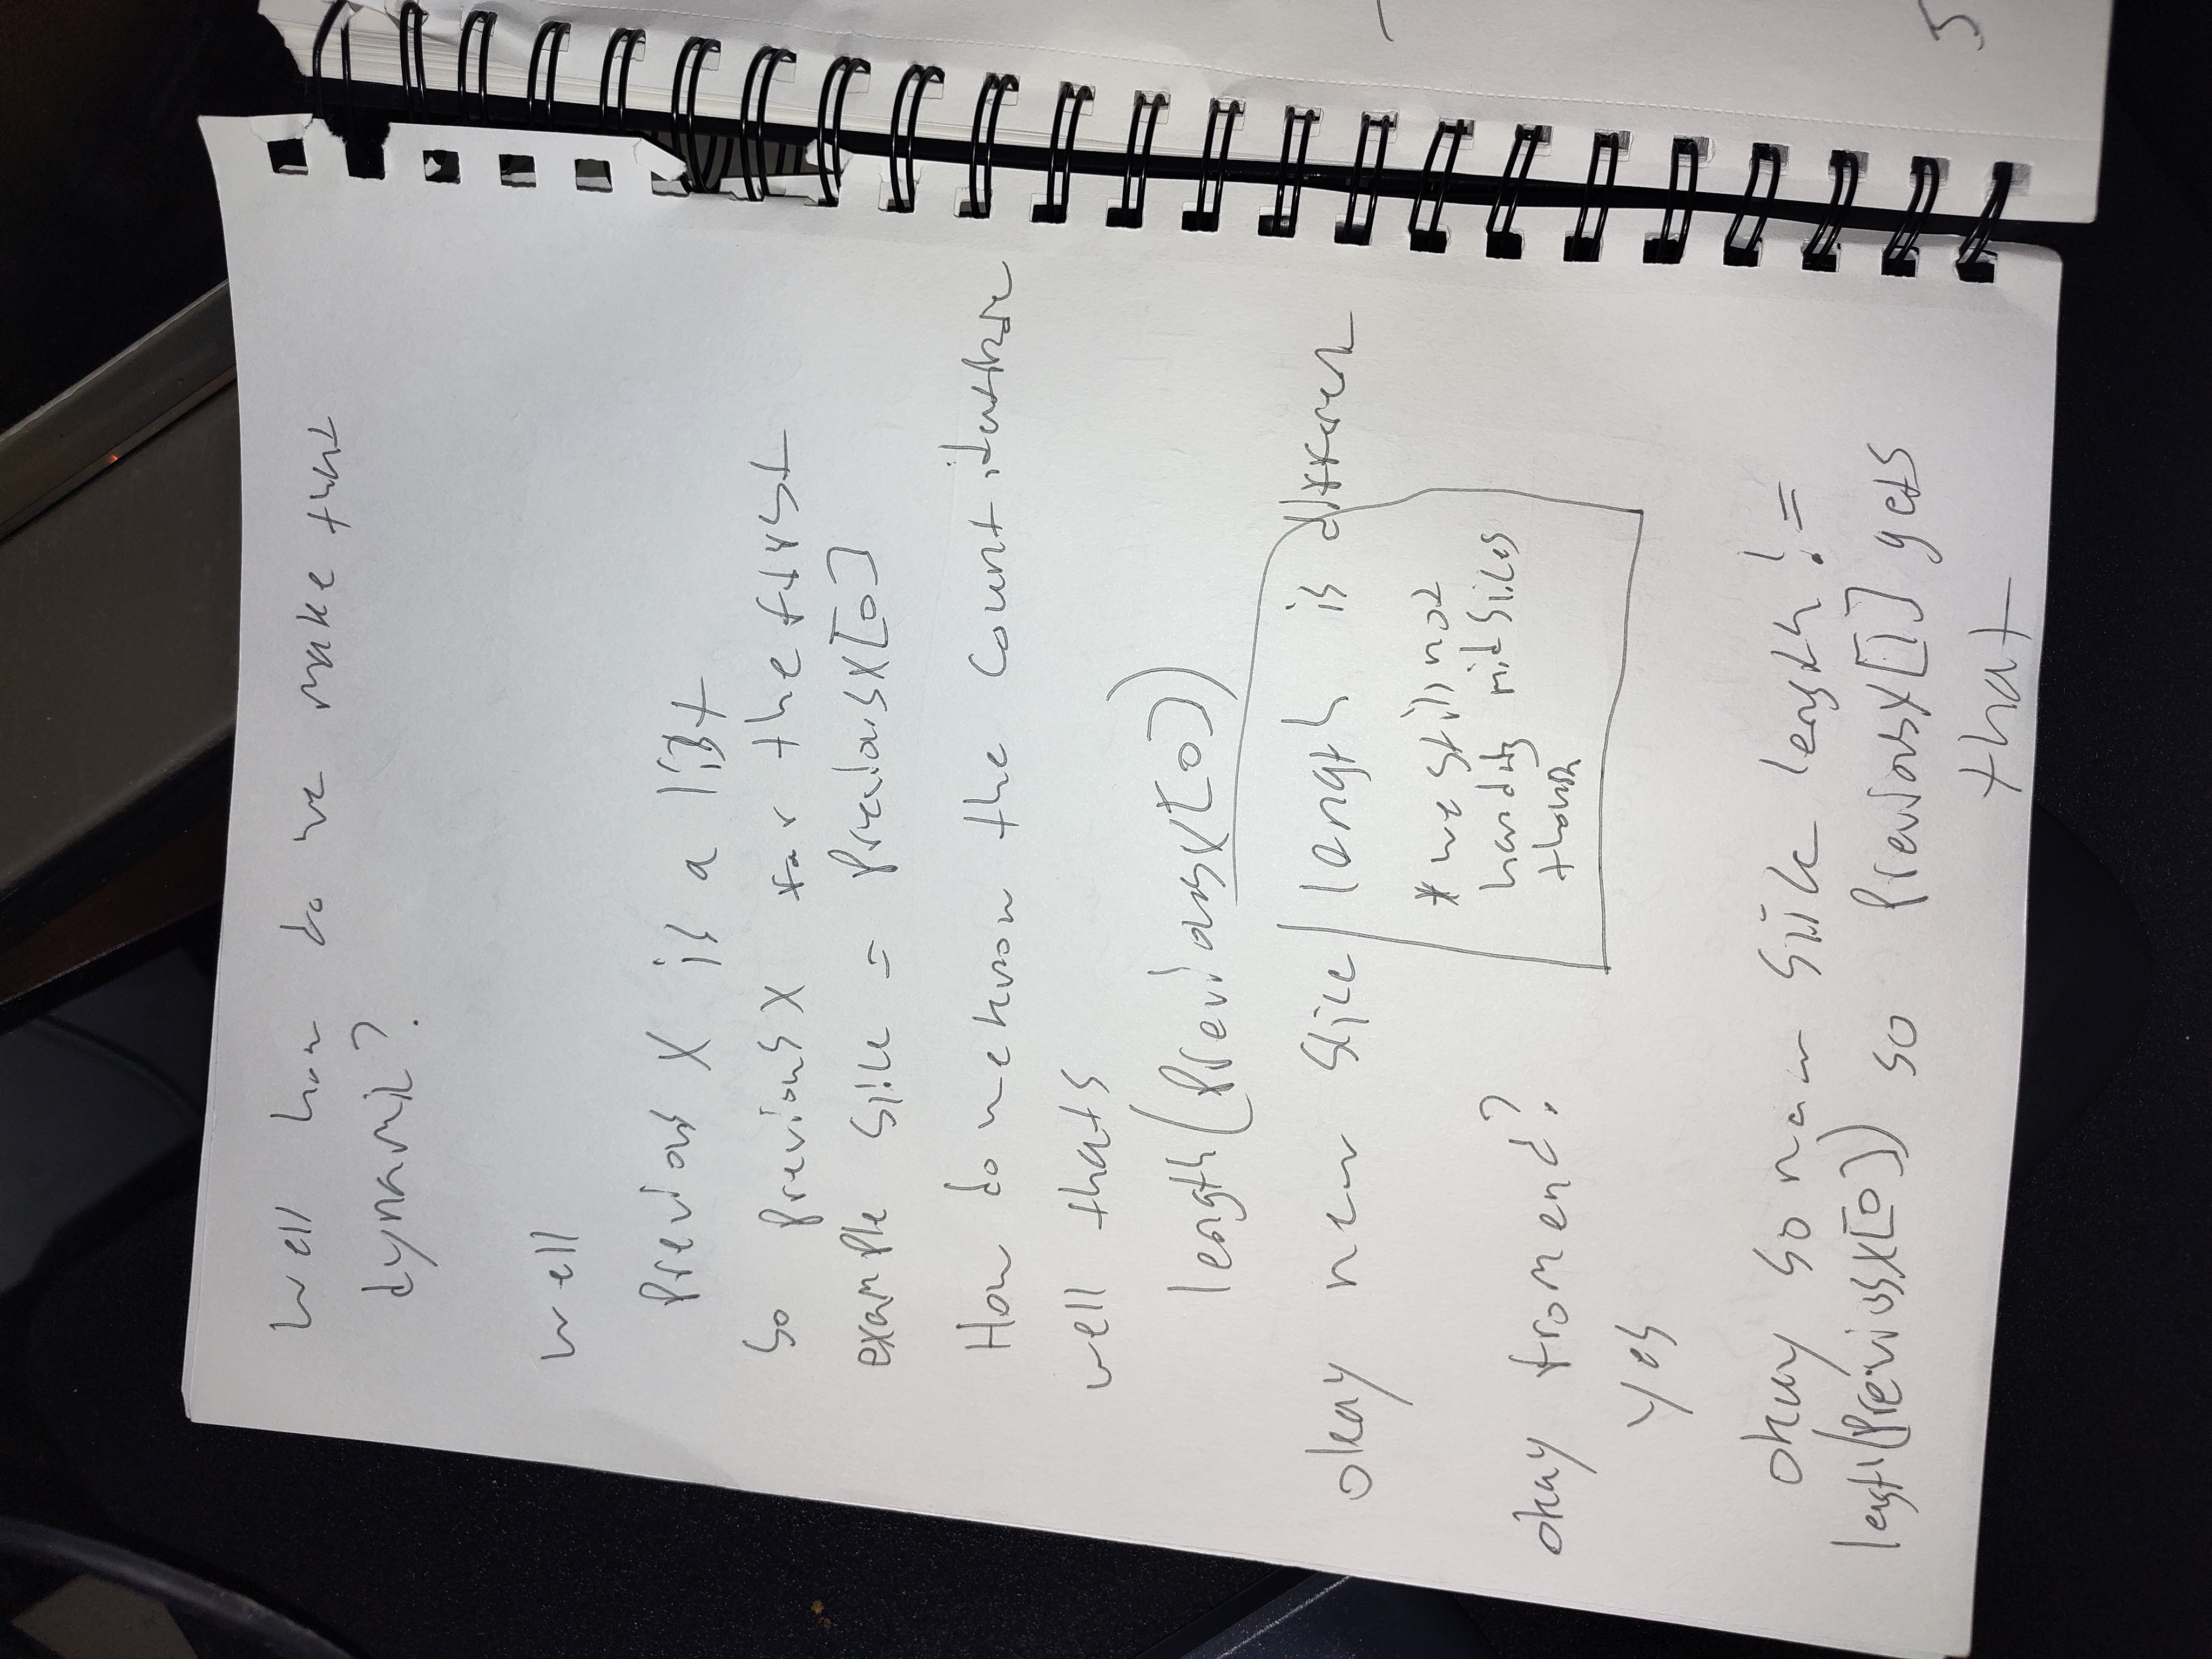 Well how do we make that
dynamic?
Well
Previous X is a list
So PreviousX for the first
example Slice = PreviousX[0]
How do we know the count
well thats
length(PreviousX[0])
okay new slice/length is different
* we still not
handling mid slices
though
okay from end?
yes
okay so new slice length !=
length(PreviousX[0]) so PreviousX[1] gets
that